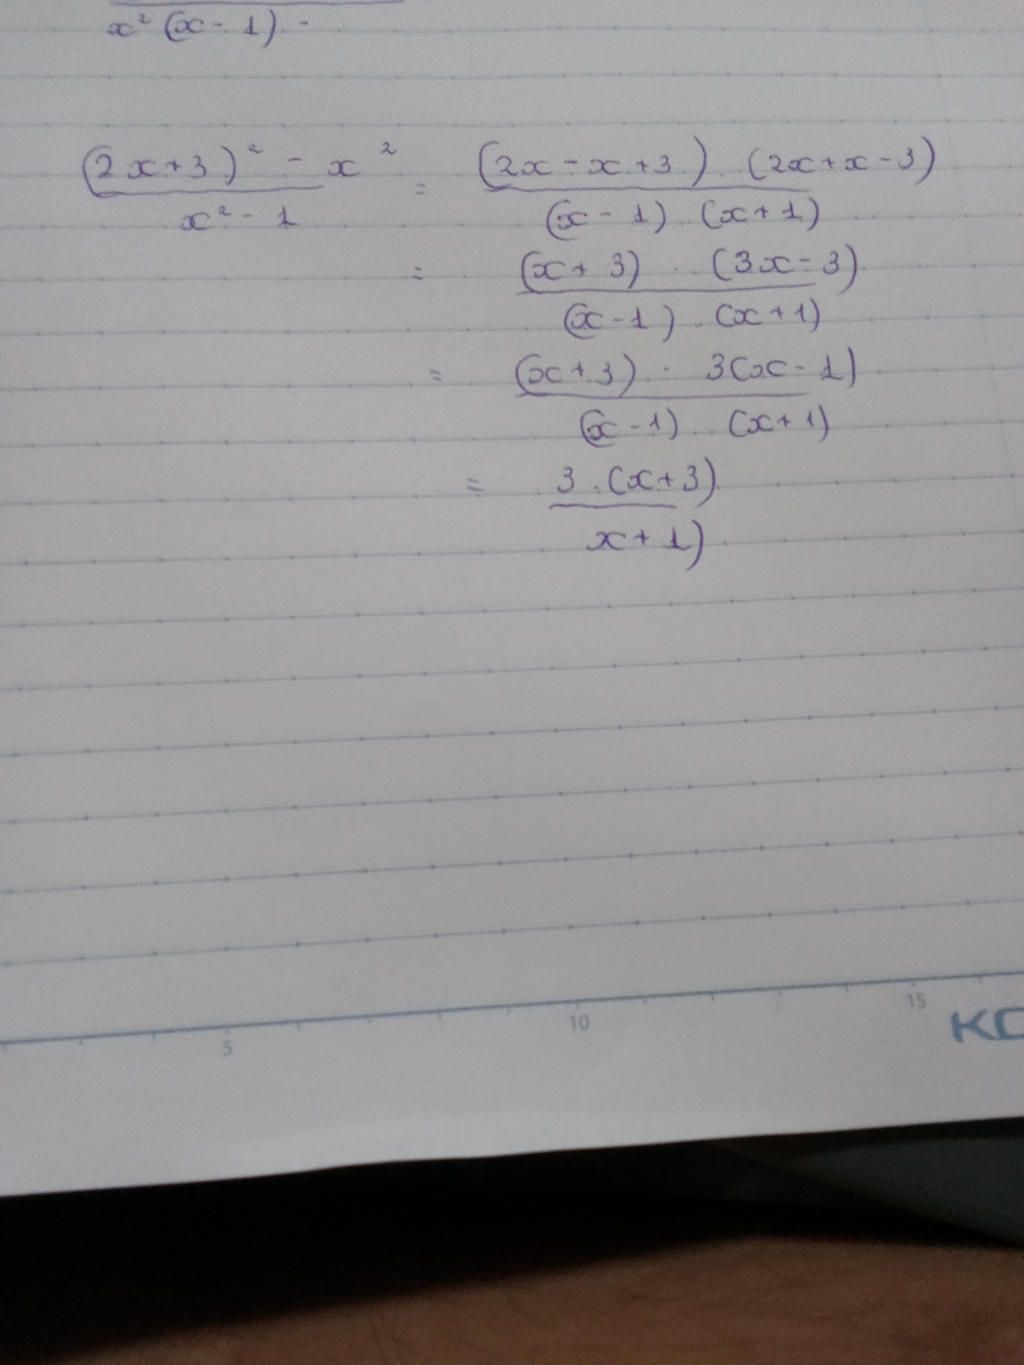 x² (x - 1) .
(2x+3)² - x² / x² - 1 = (2x - x + 3) . (2x + x - 3) / (x - 1) . (x + 1)
= (x + 3) . (3x - 3) / (x - 1) . (x + 1)
= (x + 3) . 3(x - 1) / (x - 1) . (x + 1)
= 3 . (x + 3) / x + 1)
5 10 15